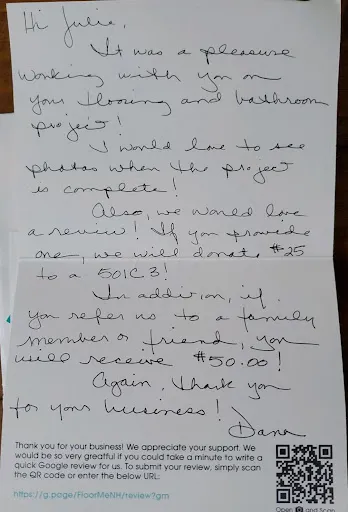 Hi Julia,
It was a pleasure
working with you on
your flooring and bathroom
project!
I would love to see
photos when the project
is complete!
Also, we would love
a review! If you provide
one, we will donate $25
to a 501C3!
In addition, if
you refer us to a family
member or friend, you
will receive $50.00!
Again, thank you
for your business!
Dana
Thank you for your business! We appreciate your support. We
would be so very greatful if you could take a minute to write a
quick Google review for us. To submit your review, simply scan
the QR code or enter the below URL:
https://g.page/FloorMeNH/review?gm
Open and Scan